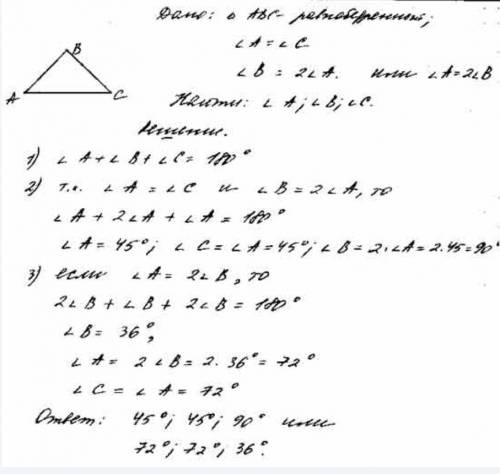 Дано: △ ABC - равнобедренный;
∠A = ∠C
∠B = 2∠A. или ∠A = 2∠B
Найти: ∠A; ∠B; ∠C.
B
A C
Решение.
1) ∠A + ∠B + ∠C = 180°
2) т.к. ∠A = ∠C и ∠B = 2∠A, то
∠A + 2∠A + ∠A = 180°
∠A = 45°; ∠C = ∠A = 45°; ∠B = 2·∠A = 2·45 = 90°
3) если ∠A = 2∠B, то
2∠B + ∠B + 2∠B = 180°
∠B = 36°;
∠A = 2∠B = 2·36° = 72°
∠C = ∠A = 72°
Ответ: 45°; 45°; 90° или
72°; 72°; 36°.